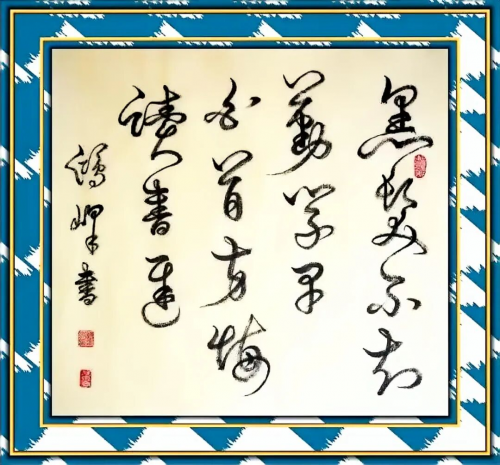 黑髮不知
勤学早
白首方悔
讀書遲
書